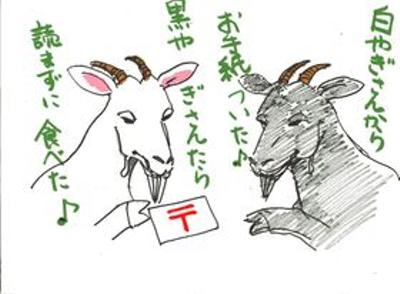 白やぎさんから
お手紙ついた♪
黒やぎさんたら
読まずに食べた♪
〒